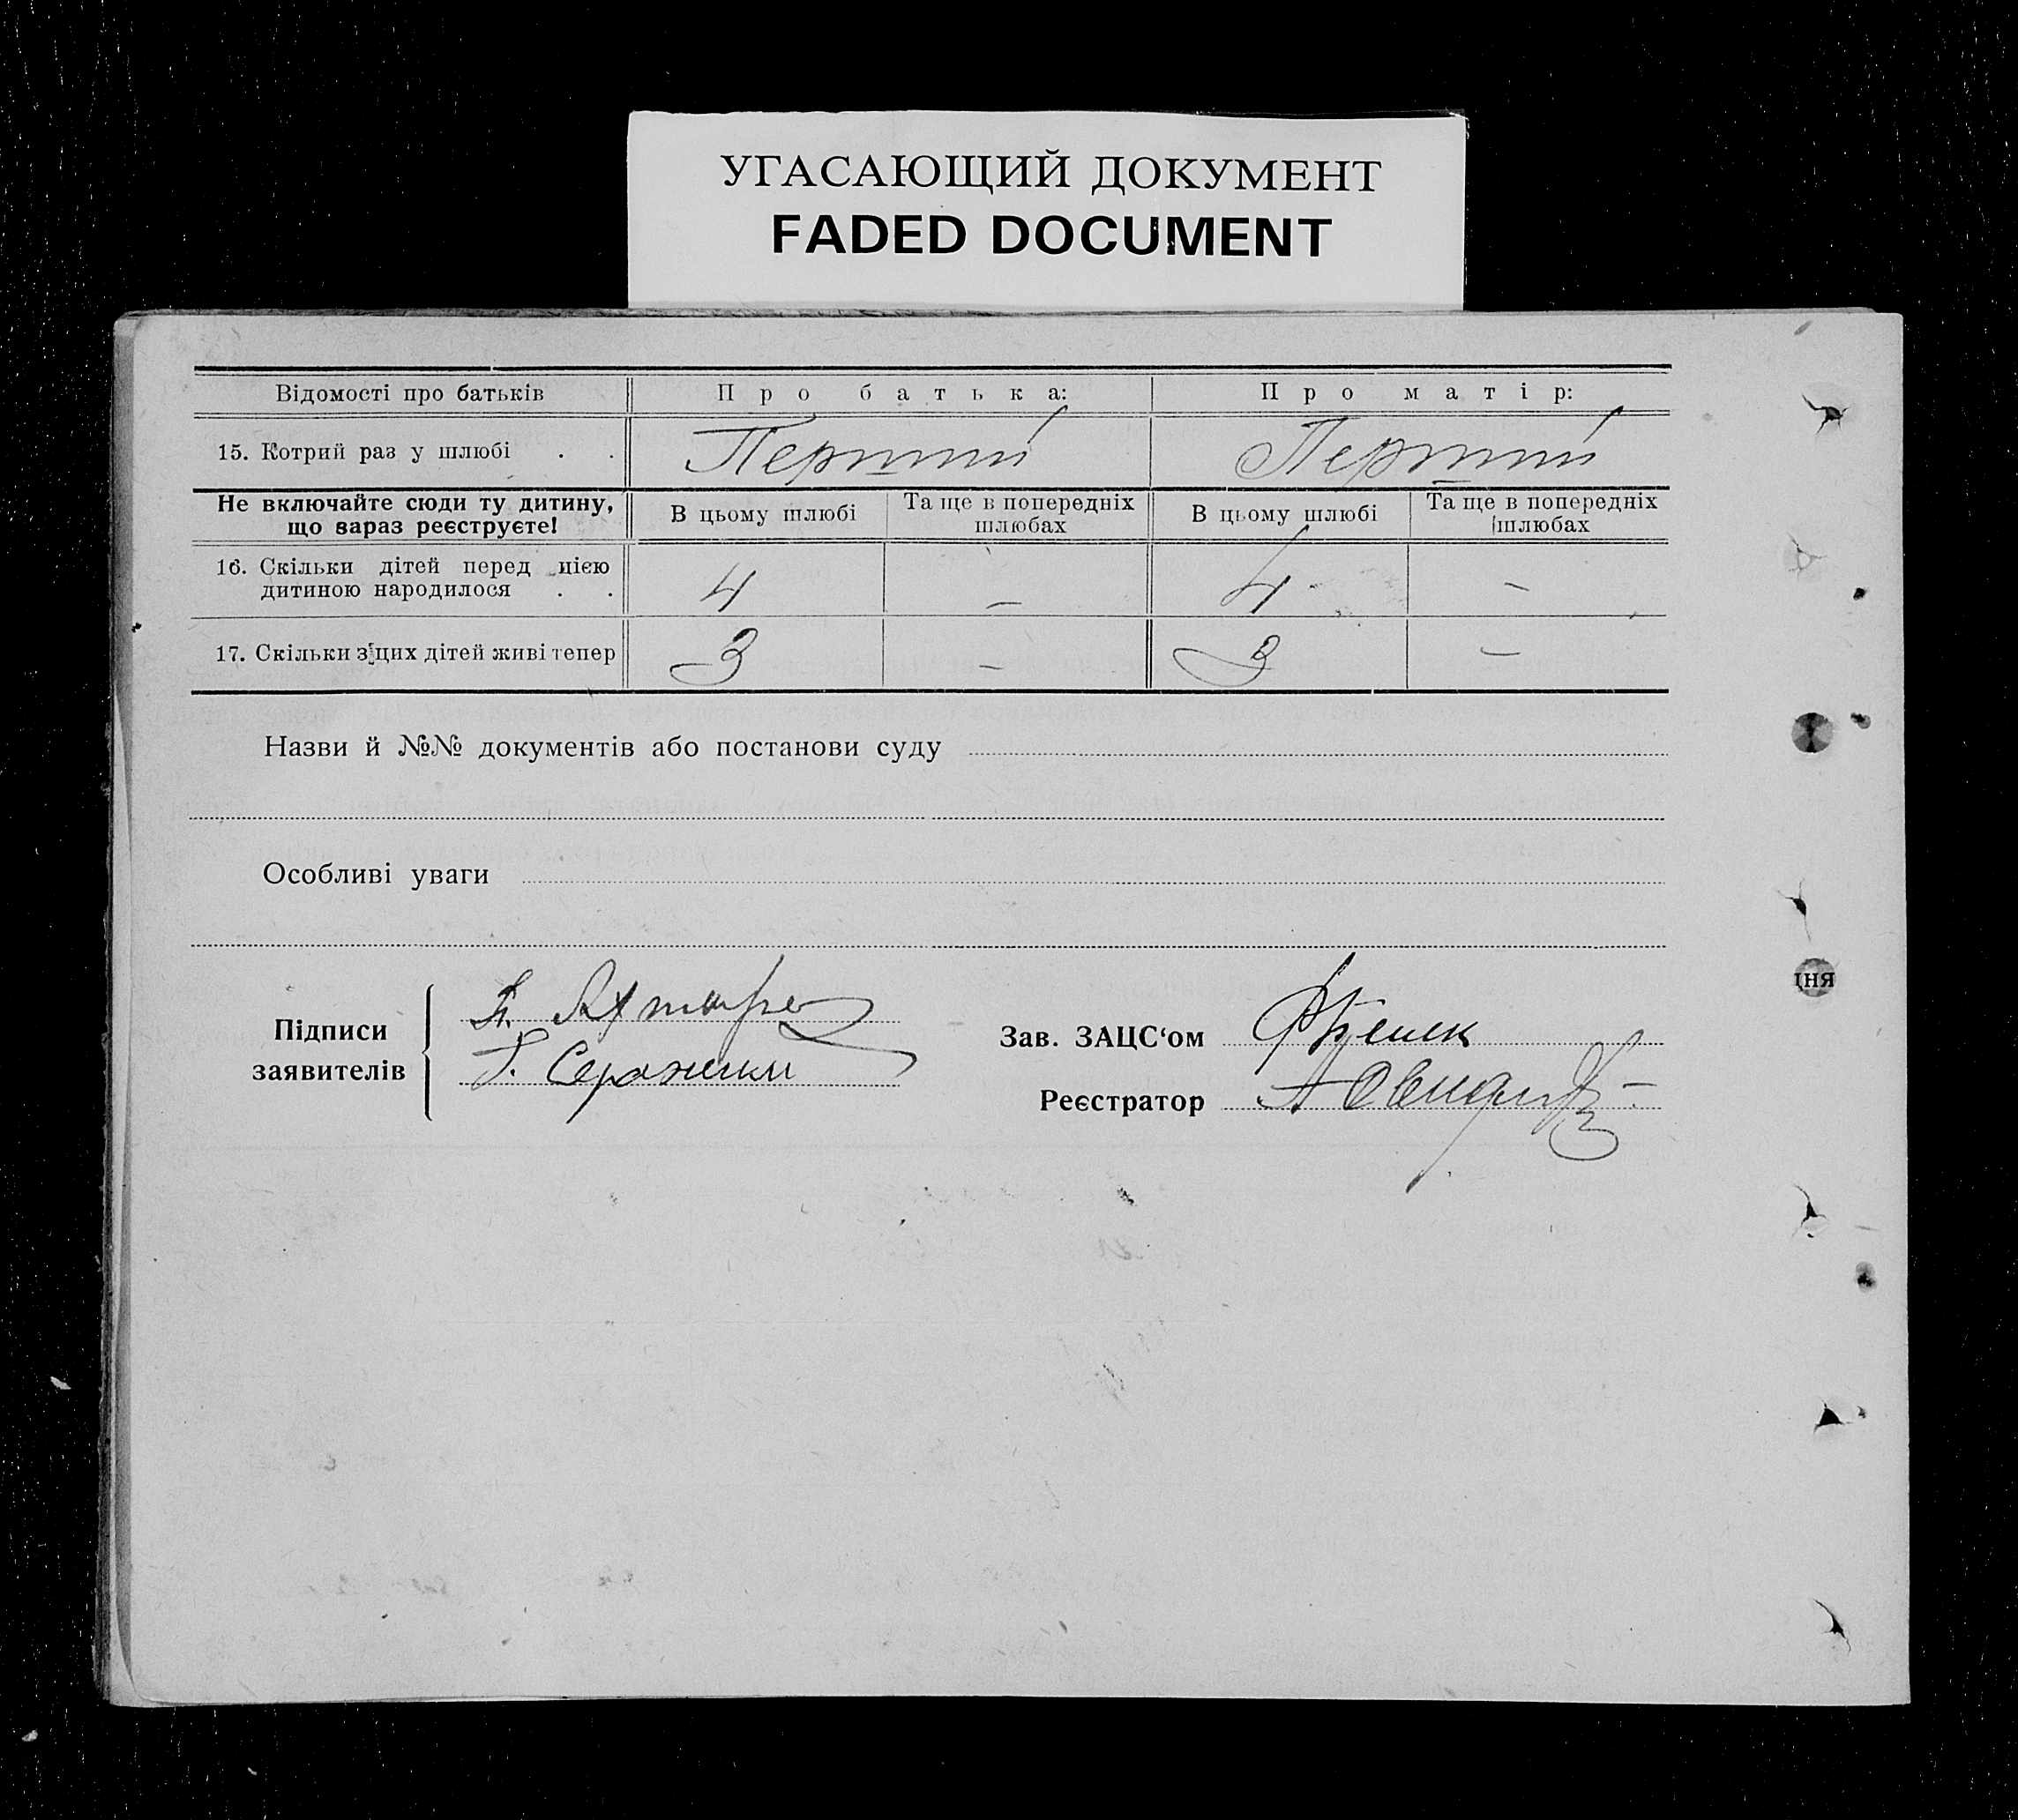 УГАСАЮЩИЙ ДОКУМЕНТ
FADED DOCUMENT
Відомості про батьків Про батька: Про матір:
15. Котрий раз у шлюбі . . Перший Перший
Не включайте сюди ту дитину, що вараз реєструєте! В цьому шлюбі Та ще в попередніх шлюбах В цьому шлюбі Та ще в попередніх шлюбах
16. Скільки дітей перед цією дитиною народилося . . 4 — 4 —
17. Скільки з цих дітей живі тепер 3 — 3 —
Назви й №№ документів або постанови суду
Особливі уваги
Підписи заявителів
Зав. ЗАЦС‘ом
Реєстратор
іня